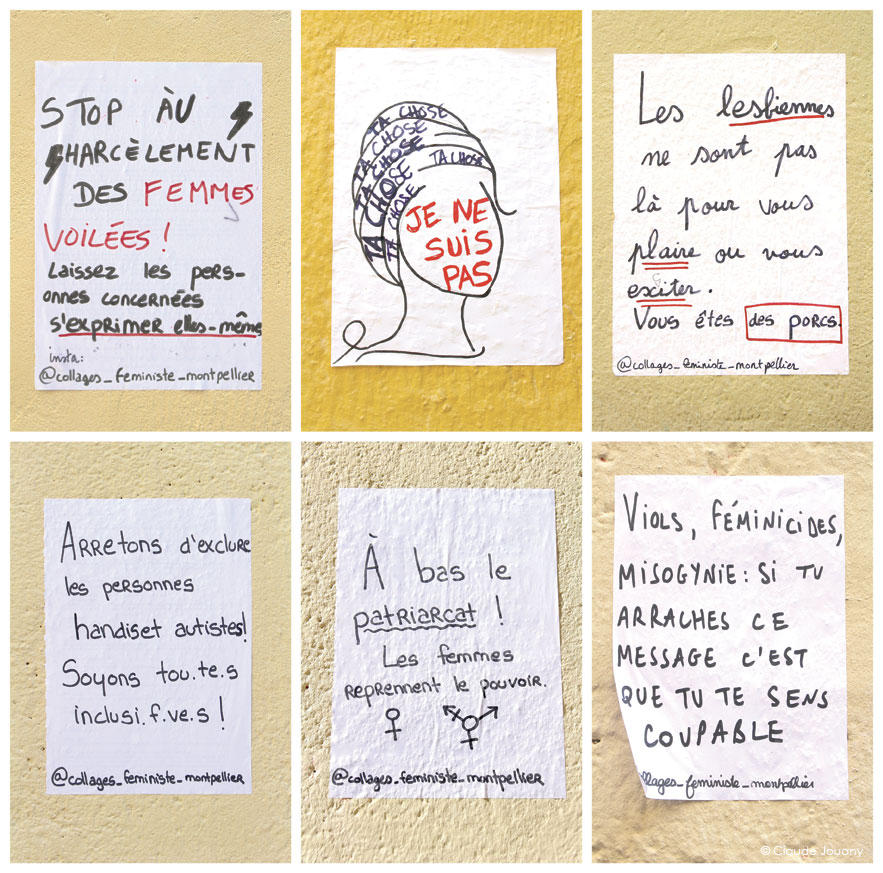 STOP ÀU
HARCÈLEMENT
DES FEMMES
VOILÉES !
Laissez les pers-
onnes concernées
s'exprimer elles-même
insta:
@collages_feministe_montpellier
TA CHOSE
TA CHOSE
TA CHOSE
TA CHOSE
TA CHOSE
TA CHOSE
TA CHOSE
TA
JE NE
SUIS
PAS
Les lesbiennes
ne sont pas
là pour vous
plaire ou vous
exciter.
Vous êtes des porcs.
@collages_feministe_montpellier
ARRetons d'exclure
les personnes
handiset autistes!
Soyons tou.te.s
inclusi.f.ve.s !
@collages_feministe_montpellier
À bas le
patriarcat !
Les femmes
reprennent le pouvoir.
@collages_feministe_montpellier
VIOLS, FÉMINICIDES,
MISOGYNIE: SI TU
ARRACHES CE
MESSAGE C'EST
QUE TU TE SENS
COUPABLE
llages_feministe_montpellier
© Claude Jouany